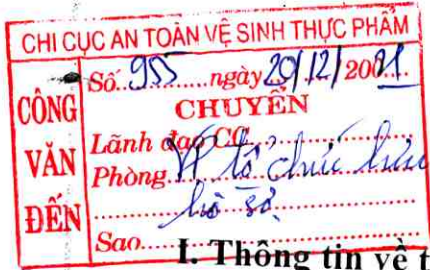 CHI CỤC AN TOÀN VỆ SINH THỰC PHẨM
CÔNG VĂN ĐẾN
Số 955 ngày 29/12/2021
CHUYỂN
Lãnh đạo CC
Phòng tổ chức lưu
hồ sơ
Sao
I. Thông tin về t